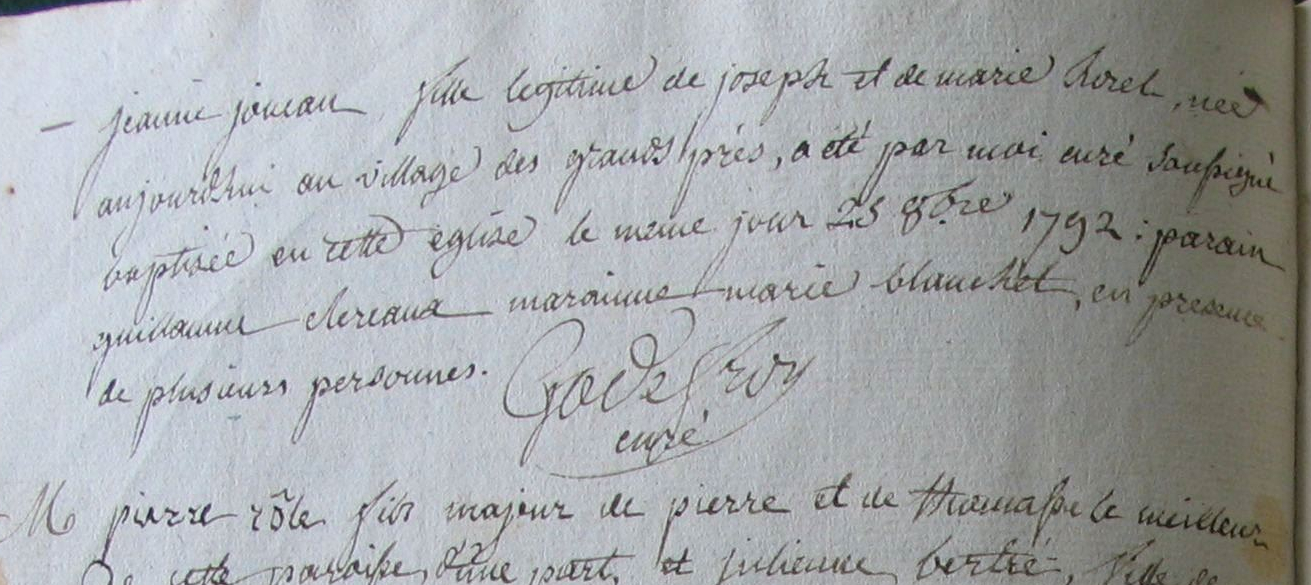 — jeanne joueau fille legitime de joseph et de marie horel, née
aujourdhui au village des grands prés, a été par moi curé soussigné
baptisée en cette église le meme jour 25 8bre 1792 : parain
guillaume clereaux marainne marie blanchet, en presence
de plusieurs personnes. Godefroy
curé
M pierre rôle fils majeur de pierre et de thomasse le meilleur
De cette paroisse, d'une part, et julienne bertré, fille